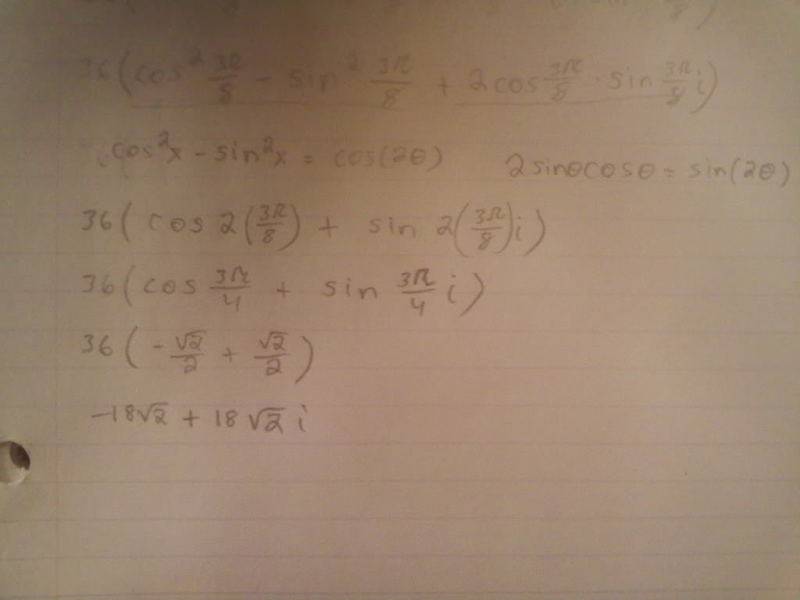 36(cos² 3π/8 - sin² 3π/8 + 2cos 3π/8 · sin 3π/8 i)
cos²x - sin²x = cos(2θ) 2sinθcosθ = sin(2θ)
36(cos 2(3π/8) + sin 2(3π/8)i)
36(cos 3π/4 + sin 3π/4 i)
36(-√2/2 + √2/2)
-18√2 + 18√2 i